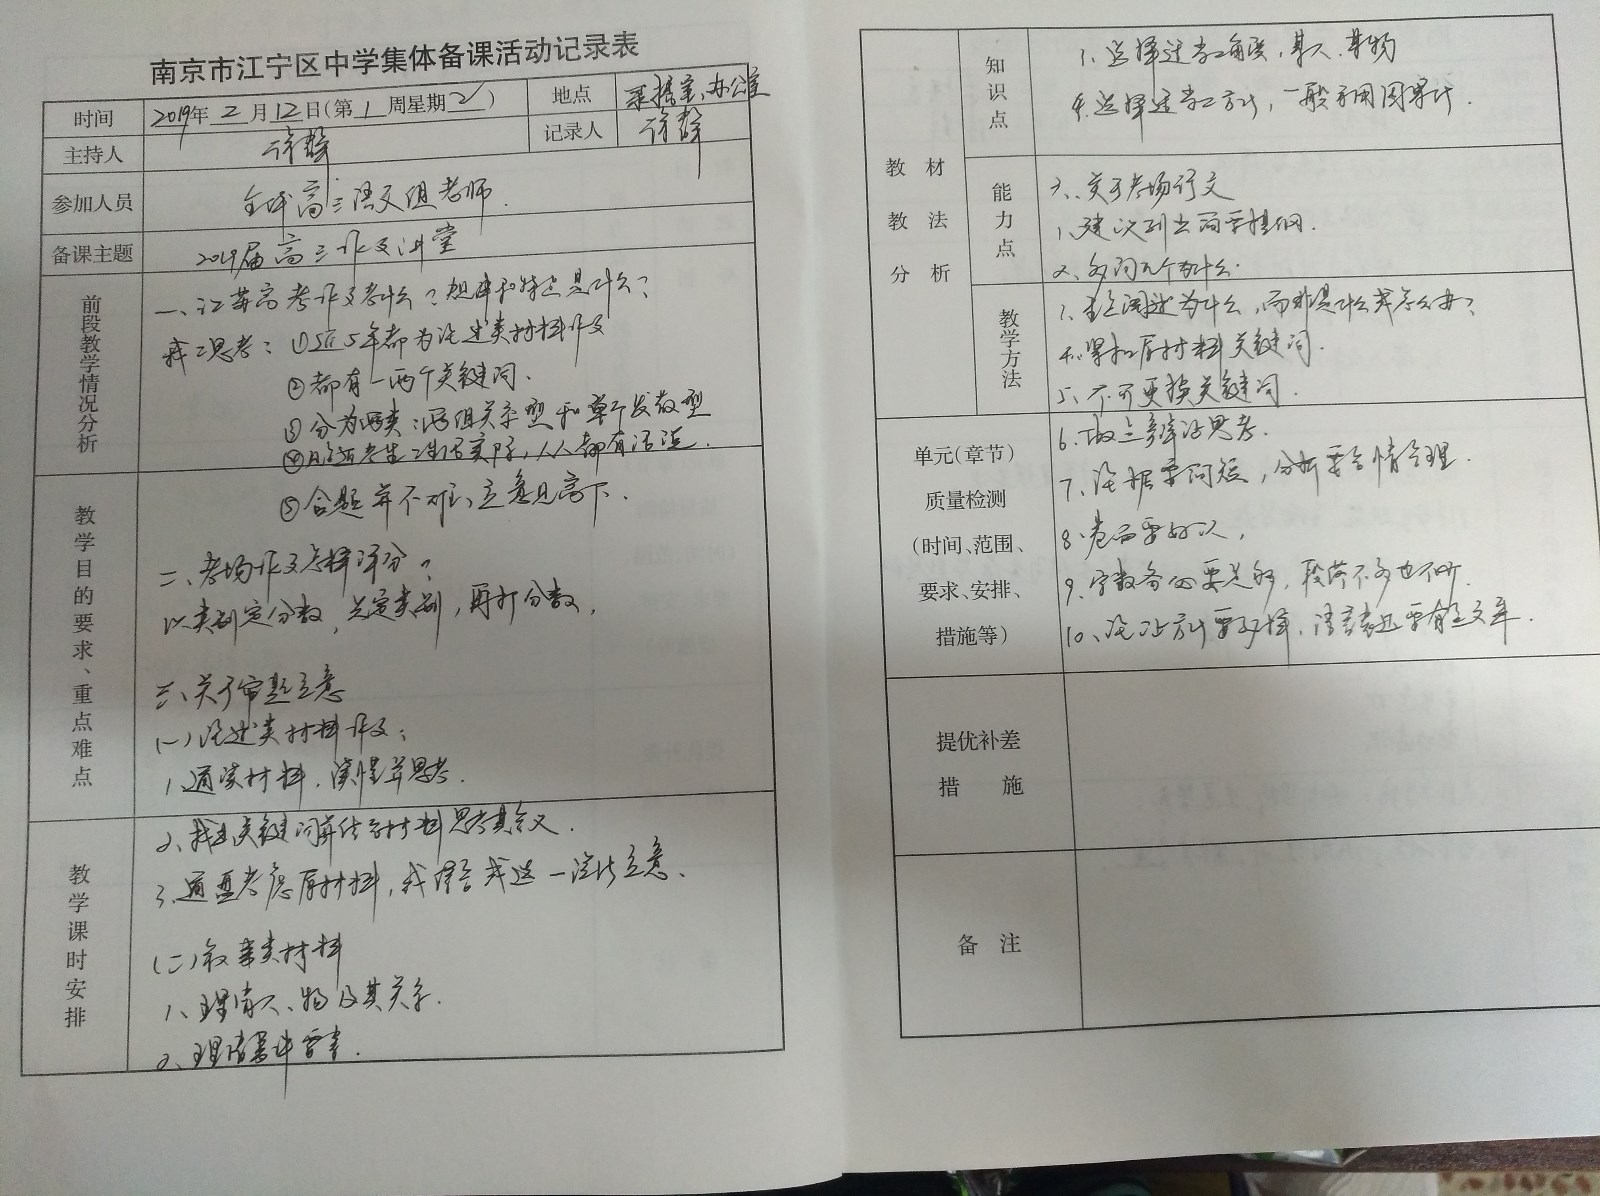 南京市江宁区中学集体备课活动记录表
时间 2019年 2 月 12 日(第 1 周星期 2 ) 地点 办公室
主持人 记录人
参加人员 全体高三语文组老师.
备课主题 2019届高三作文讲堂
前段教学情况分析
一、江苏高考作文考什么?规律和特点是什么?
我的思考:①近5年都为论述类材料作文
②都有一两个关键词.
③分为两类:两组关系型和单个发散型
④贴近考生生活实际,人人都有话说.
⑤合题并不难,立意见高下.
教学目的要求、重点难点
二、考场作文怎样评分?
以类别定分数,先定类别,再打分数.
三、关于审题立意
(一)论述类材料作文:
1、通读材料,读懂并思考.
教学课时安排
2、找出关键词并结合材料思考其含义.
3、通盘考虑原材料,选一
(二)叙事类材料
1、理清人、物及其关系.
2、理清事件
教材教法分析
知识点
3、选择适当角度,某人、某物
4、选择适当方法,一般可用因果法.
能力点
六、关于考场作文
1、建议列出简要提纲.
2、多问几个为什么.
教学方法
3、重在阐述为什么,而非是什么或怎么办?
4、紧扣原材料关键词.
5、不可更换关键词.
单元(章节)
质量检测
(时间、范围、
要求、安排、
措施等)
6、做点辩证思考.
7、论据要简短,分析要合情合理.
8、卷面要好认,
9、字数务必要足够,段落不多也不少.
10、论证方法要多样,语言表述要有点文采.
提优补差
措 施
备 注